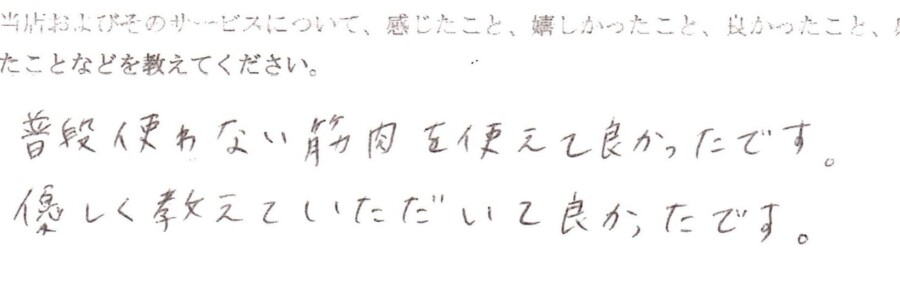 当店およびそのサービスについて、感じたこと、嬉しかったこと、良かったこと、
たことなどを教えてください。
普段使わない筋肉を使えて良かったです。
優しく教えていただいて良かったです。